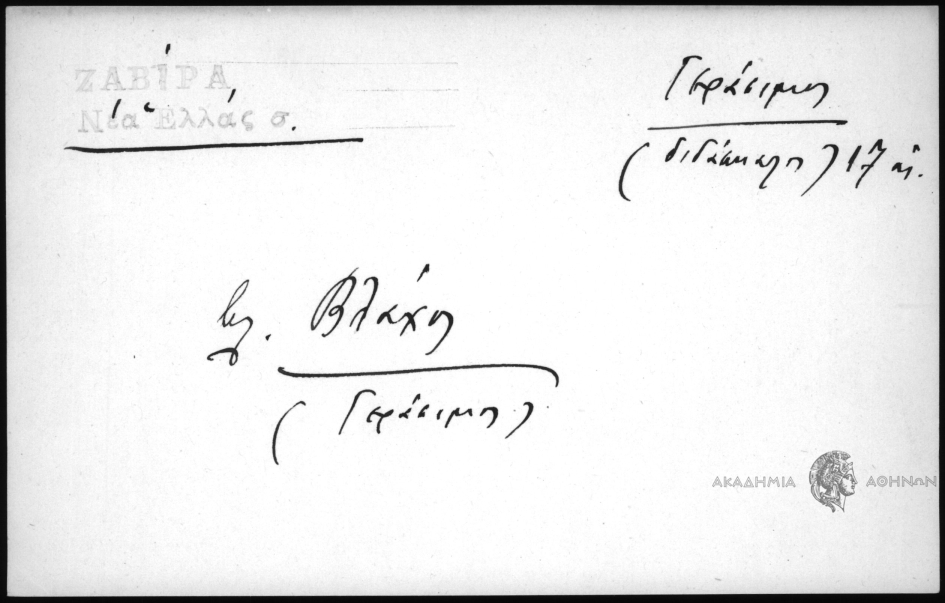 ΖΑΒΙΡΑ
Νέα Ἑλλάς σ.
Γεράσιμος
(διδάσκαλος) 17 αἰ.
βλ. Βλάχος
(Γεράσιμος)
ΑΚΑΔΗΜΙΑ ΑΘΗΝΩΝ